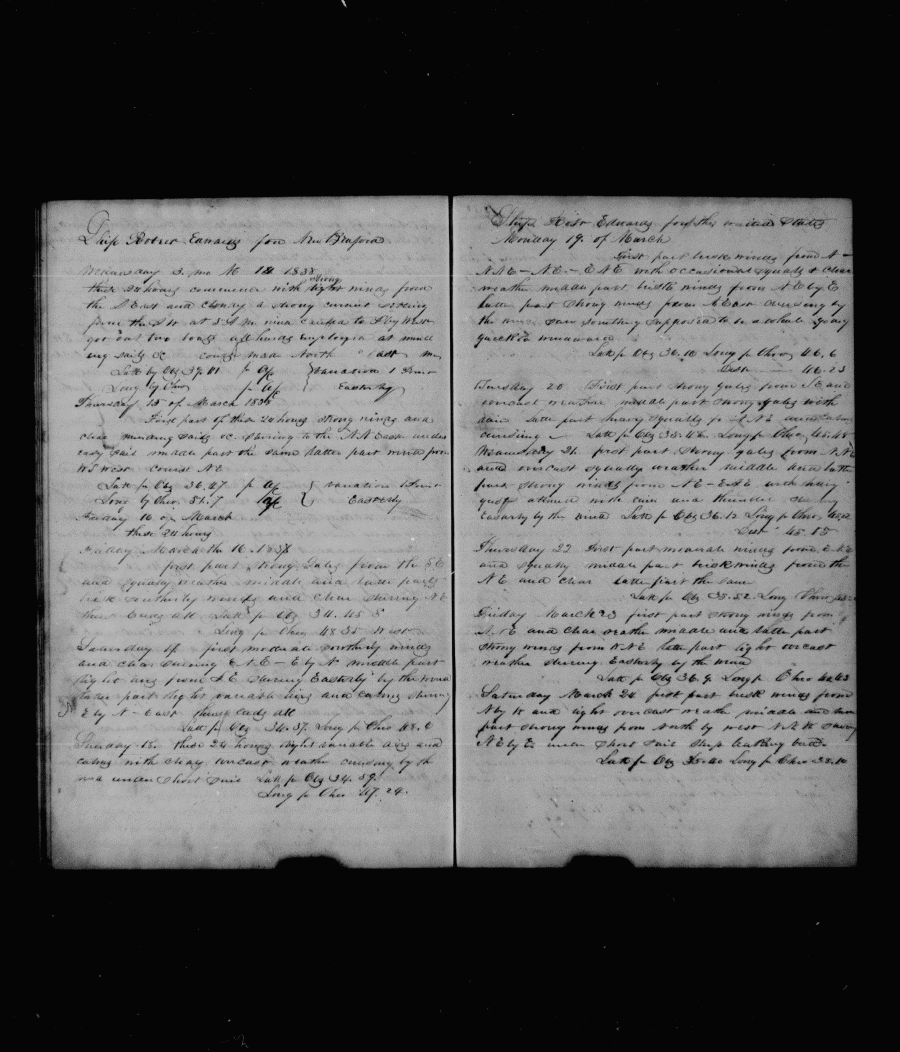 Ship Rober Edwards for New Bedford
Wednesday 3. mo 14 1838
strong
these 24 hours commence with light winds from
the S East and cloudy a strong current setting
from the SW at 5 A m wind to S by West
got out two boats all hands employed at mend
ing sails &c course made North East
Latt by Obs 39.01 variation 1
Long by Chro Easterly
Thursday 15 of March 1838
First part of these 24 hours strong winds and
clear mending sails &c stering to the NN East under
easy sail middle part the same latter part wind from
W S West course NE
Latt p Obs 36.27 variation
Long by Chro. 51.7 Easterly
Friday 16 of March
these 24 hours
Friday March the 16. 1838
first part strong Gales from the SE
and squaly weather middle and latter parts
brisk southerly winds and clear sterring NE
thus Ends all Latt p Obs 34.45 S
Long p Chro 48.35 West
Saturday 17 first moderate northerly winds
and clear stering ENE - E by N middle part
light airs from NE stering Easterly by the wind
latter part light variable airs and calms stering
E by N - East thus ends all
Latt p Obs 34.37 Long p Chro 48.6
Sunday 18. these 24 hours light variable airs and
calms with cloudy overcast weather cruising by the
wind under short sail Latt p Obs 34.59
Long p Chro 47.24
Ship Robr Edwards for the united States
Monday 19 of March
First part brisk winds from N
NNE - NE - ENE with occasional squals & clear
weather middle part brisk winds from NE by E
latter part strong winds from N East cruising by
the wind saw something supposed to be a whale going
quick to windward
Latt p Obs 36.10 Long p Chro 46.6
46.23
Tuesday 20 First part strong gales from NE and
overcast weather middle part strong gales with
rain latter part heavy squalls from NNE
cruising Latt p Obs 35.48 Long p Chro
Wednesday 21 first part strong gales from NNE
and overcast squaly weather middle and latter
part strong winds from NE - ENE with heavy
gusts attend with rain and thunder
Easterly by the wind Latt p Obs 36.12 Long p Chro
45.15
Thursday 22 First part moderate winds from ENE
and squaly middle part brisk winds from the
NE and clear latter part the same
Latt p Obs 35.52 Long Chro
Friday March 23 first part strong winds from
NE and clear weather middle and latter part
strong winds from NNE latter part light overcast
weather sterring Easterly by the wind
Latt p Obs 36.9 Long p Chro
Saturday March 24 first part brisk winds from
N by W and light overcast weather middle and latter
part strong winds from North by west NNW
NE by E under short sail ship leaking bad
Latt p Obs 35.40 Long p Chro 38.10